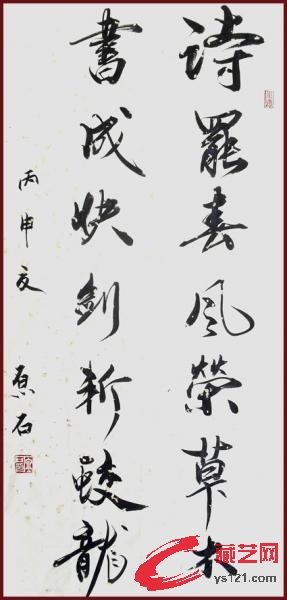 詩罷春風榮草木
書成快劍斬蛟龍
丙申夏
原石
藏艺网
ys121.com